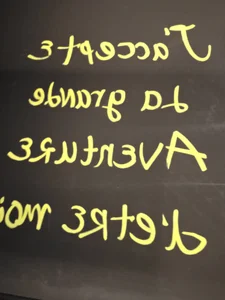 J'accepte
La grande
AVENTURE
d'ETRE moi